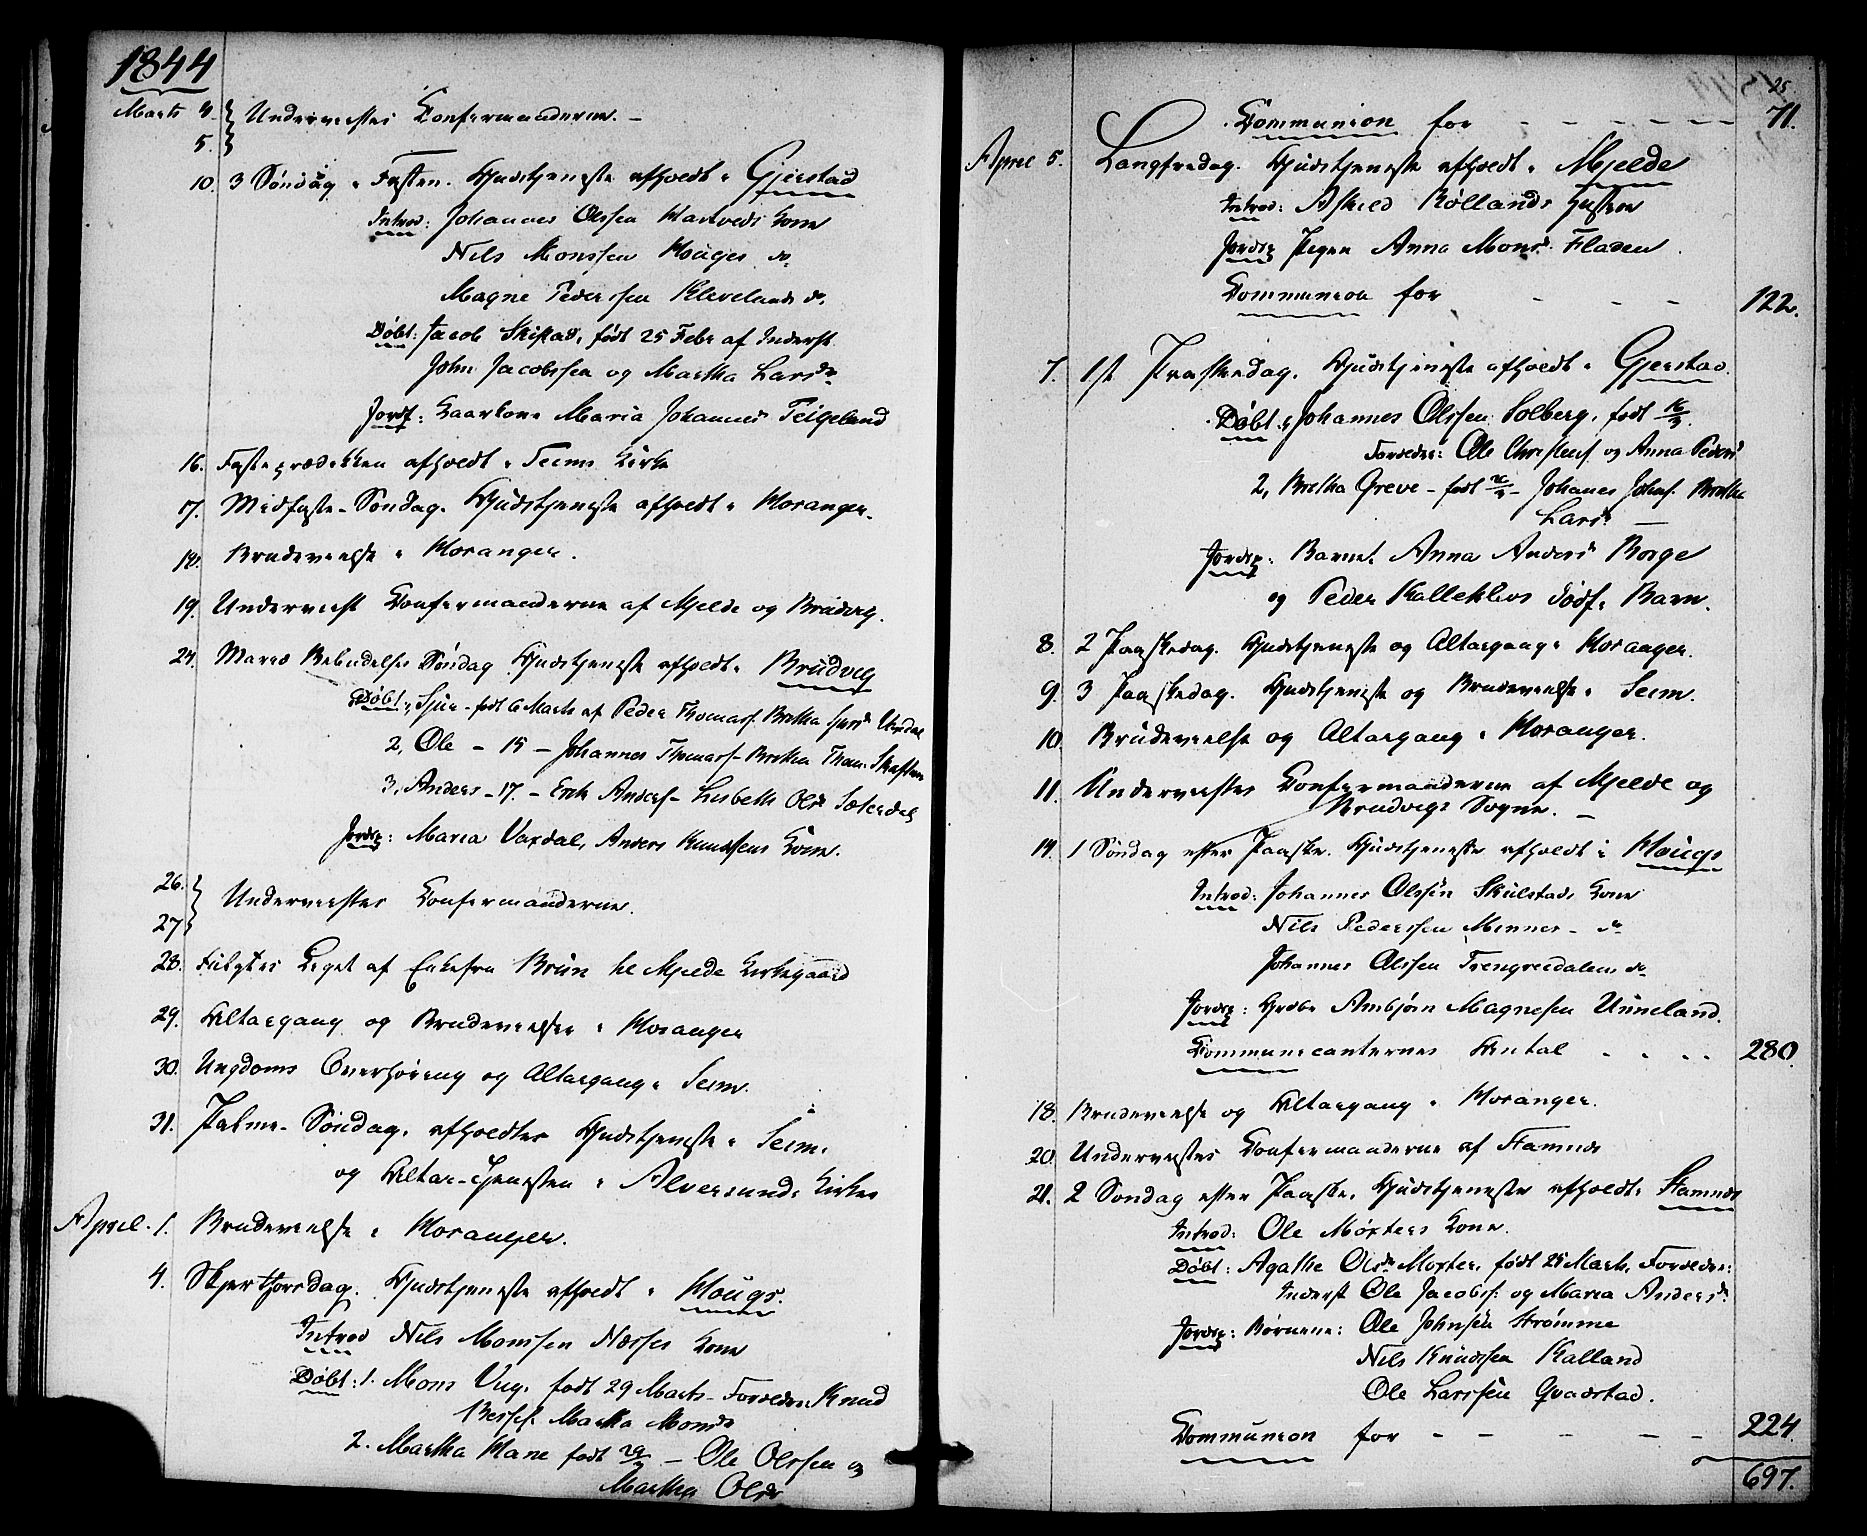 1844
Marts 4. Underviistes Confirmanderne. –
5.
10. 3 Søndag i Fasten. Gudstjeneste afholdt i Gjerstad
Introd: Johannes Olssen Hartveds Kone
Nils Monssen Houges do
Magne Pederssen Klevelands do.
Døbt: Jacob Skistad, født 25 Febr af Inderst
John Jacobssen og Martha Larsdr
Jordf: Kaarkone Maria Johannesdr Teigeland
16. Fasteprædikken afholdt i Seims Kirke
17. Midfaste-Søndag. Gudstjeneste afholdt i Hosanger.
18. Brudevielse i Hosanger.
19. Underviist Confirmanderne af Mjelde og Brudvig.
24. Mariæ Bebudelses Søndag Gudstjeneste afholdt i Brudvig
Døbt: 1, Sjur – født 6 Marts af Peder Thomass. Bretha Sjursdr Vaxdal
2, Ole – 15 – Johannes Thomass – Bretha Thom.
3, Anders – 17. – Erik Anderss – Lisbeth Olsdr Sæterdal
Jordf: Maria Vaxdal, Anders Knudssens Kone.
26. Underviistes Confirmanderne.
27
28. Fulgtes Liget af Enkefru Brun til Mjelde Kirkegaard
29. Altergang og Brudevielse i Hosanger
30. Ungdoms Overhøring og Altargang i Seim.
31. Palme-Søndag. afholdtes Gudstjeneste i Seim.
og Altar-Tjenesten i Alversunds Kirke
April. 1. Brudevielse i Hosanger.
4. Skjertorsdag. Gudstjeneste afholdt i Hougs.
Introd Nils Monssen Næsses Kone
Døbt: 1. Mons Ung, født 29 Marts – Forældre: Knud
Martha Monsdr
2. Martha Hane født – Ole Olssen og
Martha Olsdr
25
Communion for – – – – – – 71.
April 5. Langfredag. Gudstjeneste afholdt i Mjelde
Introd: Askild Røllands Hustru
Jordf: Pigen Anna Monsdr Fladen.
Communion for – – – 122.
7. 1st Paaskedag. Gudstjeneste afholdt i Gjerstad.
Døbt: 1, Johannes Olssen Solberg, født 16/3.
Forældre: Ole Christens og Anna Pedersdr
2, Bretha Greve – født – Johanes Johns. Bretha
Larsdr –
Jordf: Barnet Anna Andersdr Borge
og Peder Kalleklevs dødf. Barn.
8. 2 Paaskedag. Gudstjeneste og Altargang i Hosanger.
9. 3 Paaskedag. Gudstjeneste og Brudevielse i Seim.
10. Brudevielse og Altargang i Hosanger.
11. Underviistes Confirmanderne af Mjelde og
Brudvigs Sogne. –
14. 1 Søndag efter Paaske. Gudstjeneste afholdt i Hougs
Introd: Johannes Olssen Skulstads Kone
Nils Pederssen Mennes – do
Johannes Olssen Trengereidalens do
Jordf: Gvdbr Ambjørn Magnesen Unneland.
Communicanternes Antal . . . . 280.
18. Brudevielse og Altargang i Hosanger.
20. Underviistes Confirmanderne af Stamnes
21. 2 Søndag efter Paaske. Gudstjeneste afholdt i Stamnes
Introd: Ole Møxters Kone.
Døbt: Agathe Olsdr Moxter, født 25 Marts, Forældre:
Inderst Ole Jacobss: og Maria Andersdr
Jordf: Børnene: Ole Johnsen Strømme
Nils Knudssen Kalland
Ole Larssen Qvadstad.
Communion for – – – – – 224
697.